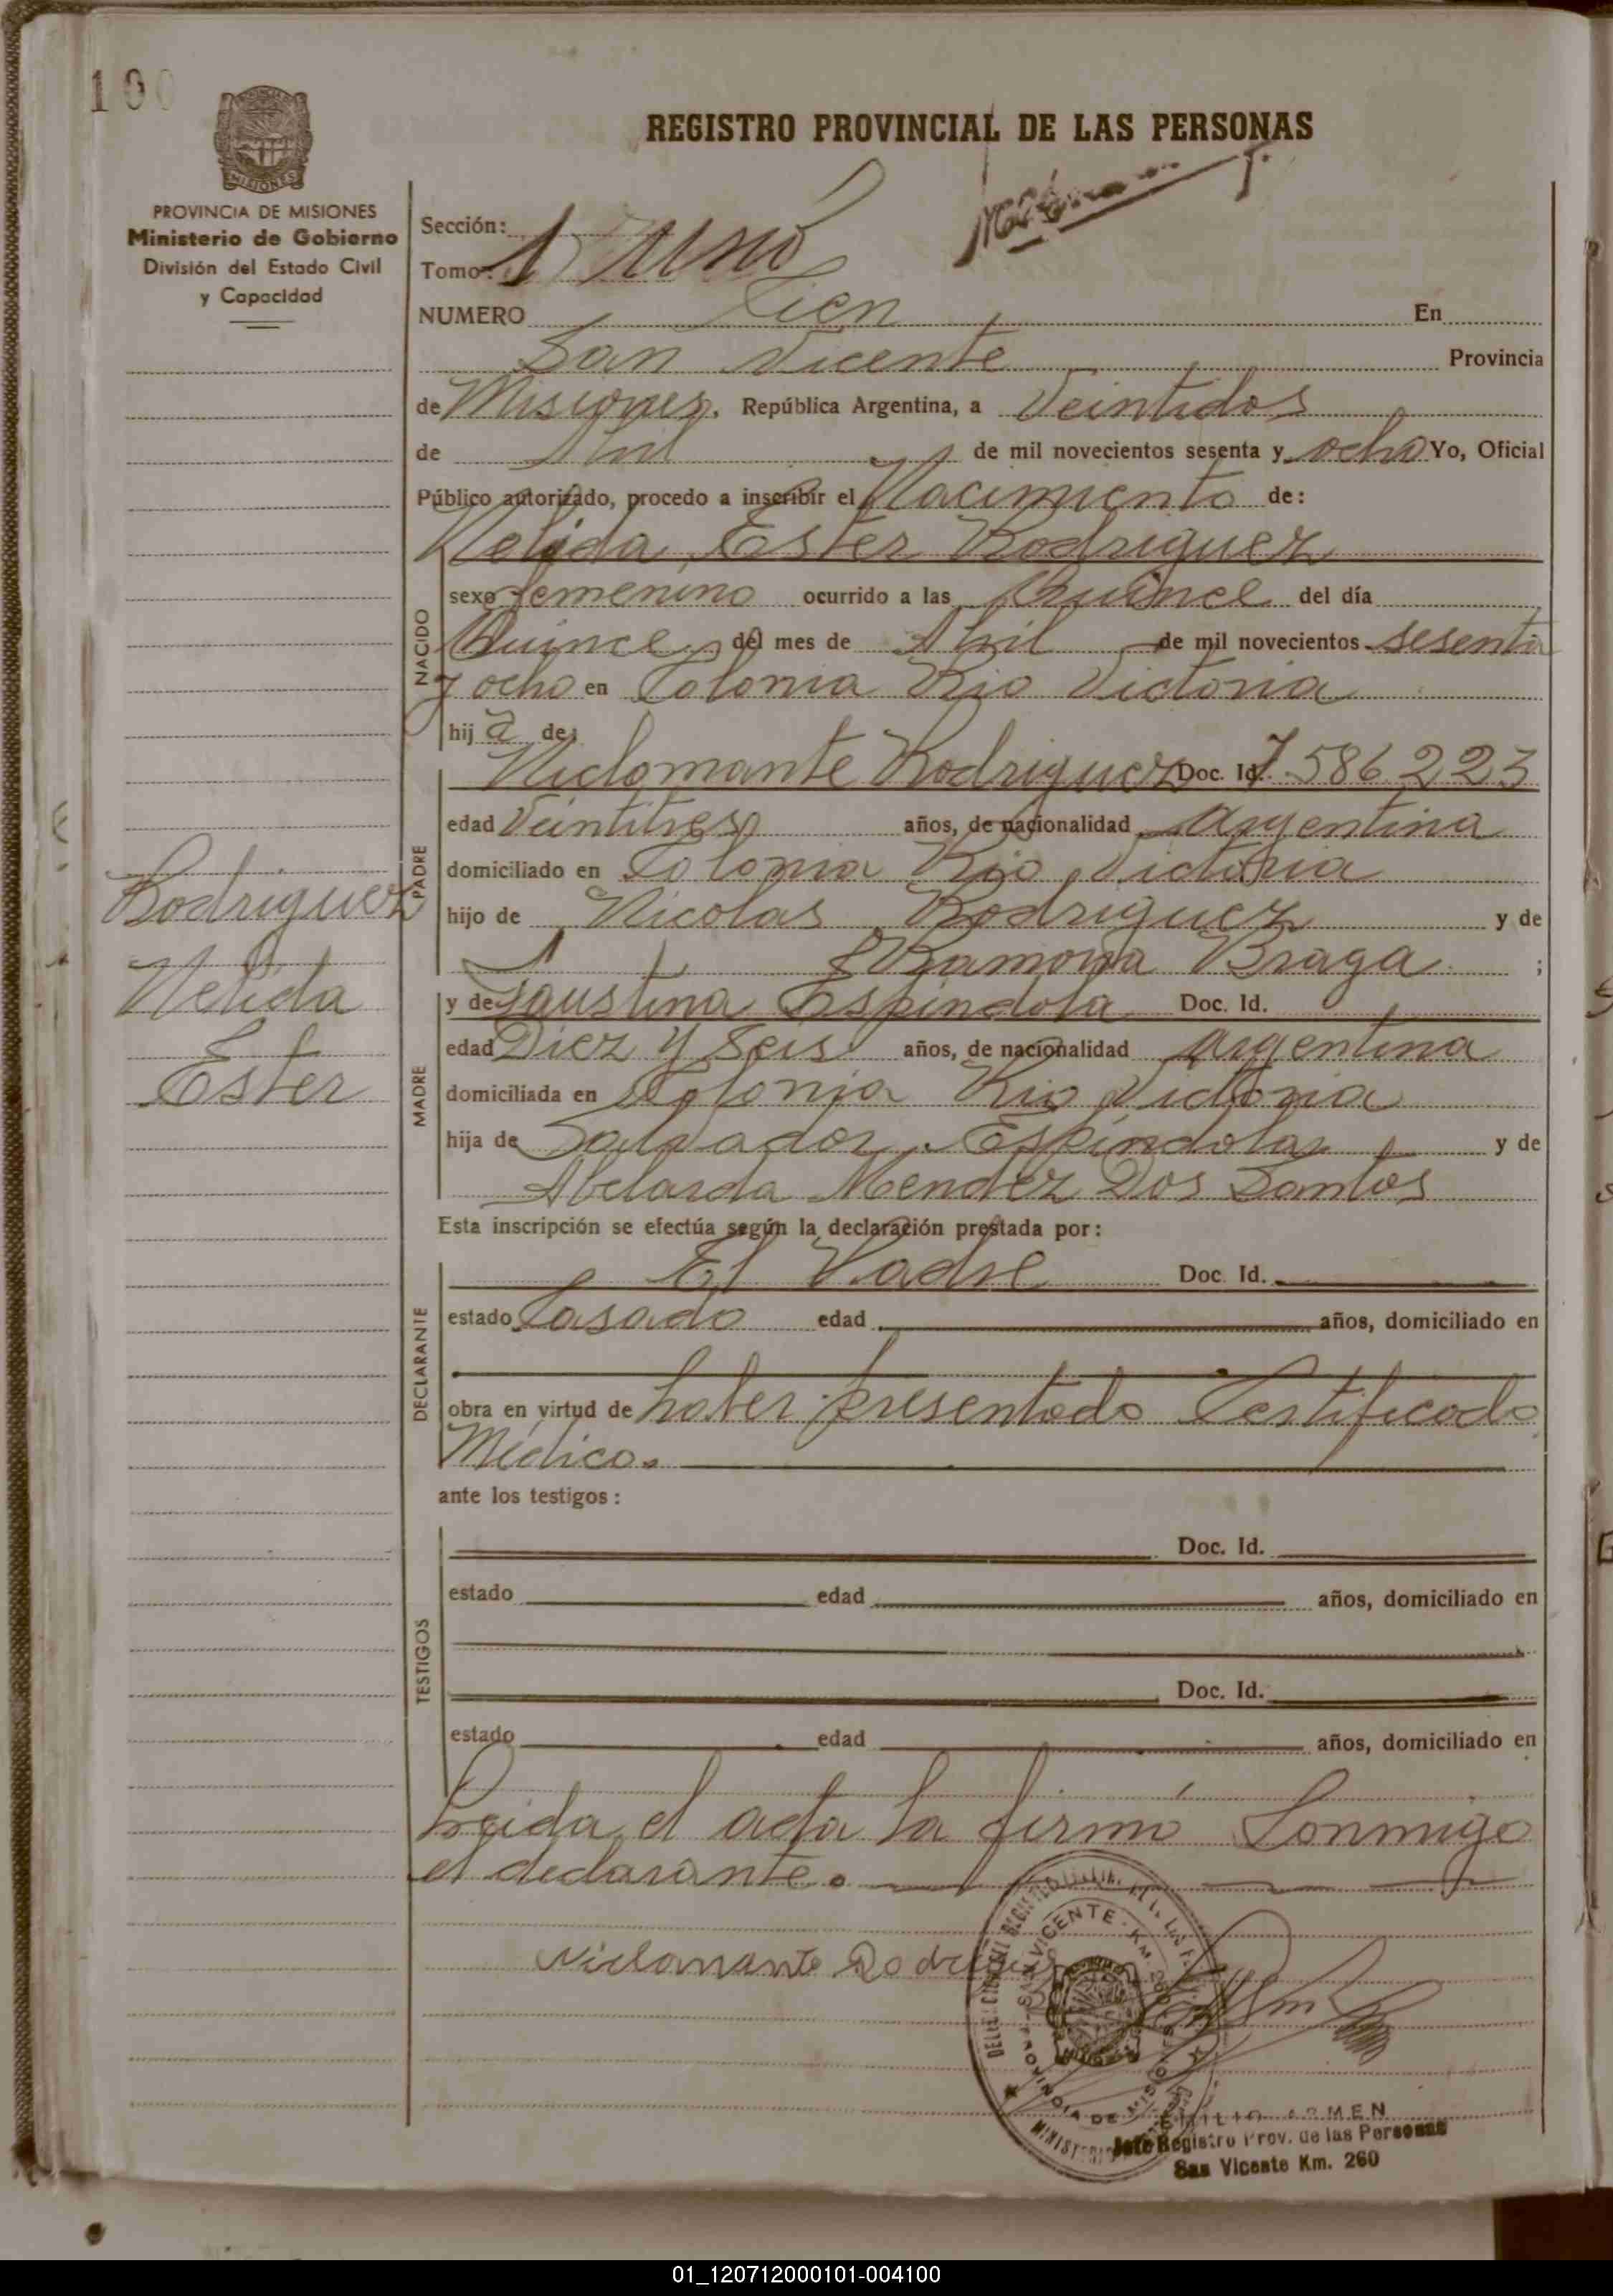 100
REGISTRO PROVINCIAL DE LAS PERSONAS
MISIONES
PROVINCIA DE MISIONES
Ministerio de Gobierno
División del Estado Civil
y Capacidad
Sección:
Tomo: 1 Uno
NUMERO Cien En
San Vicente Provincia
de Misiones. República Argentina, a Veintidos
de Abril de mil novecientos sesenta y ocho Yo, Oficial
Público autorizado, procedo a inscribir el Nacimiento de:
Nelida Ester Rodriguez
NACIDO
sexo femenino ocurrido a las Quince del día
Quince del mes de Abril de mil novecientos sesenta
y ocho en Colonia Rio Victoria
hija de:
PADRE
Niclomante Rodriguez Doc. Id. 7.586.223
edad Veintitres años, de nacionalidad Argentina
domiciliado en Colonia Rio Victoria
hijo de Nicolas Rodriguez y de
Ramona Braga ;
MADRE
y de Faustina Espindola Doc. Id.
edad Diez y Seis años, de nacionalidad Argentina
domiciliada en Colonia Rio Victoria
hija de Salvador Espindola y de
Abelarda Mendez Dos Santos
Rodriguez
Nelida
Ester
Esta inscripción se efectúa según la declaración prestada por:
DECLARANTE
El Padre Doc. Id.
estado Casado edad años, domiciliado en
obra en virtud de haber presentado Certificado
Médico.
ante los testigos:
TESTIGOS
Doc. Id.
estado edad años, domiciliado en
Doc. Id.
estado edad años, domiciliado en
Leida el acta la firmó Conmigo
el declarante.
Niclomante Rodriguez
SAN VICENTE - KM 260
PROVINCIA DE MISIONES
EMILIO ARMEN
Jefe Registro Prov. de las Personas
San Vicente Km. 260
01_120712000101-004100